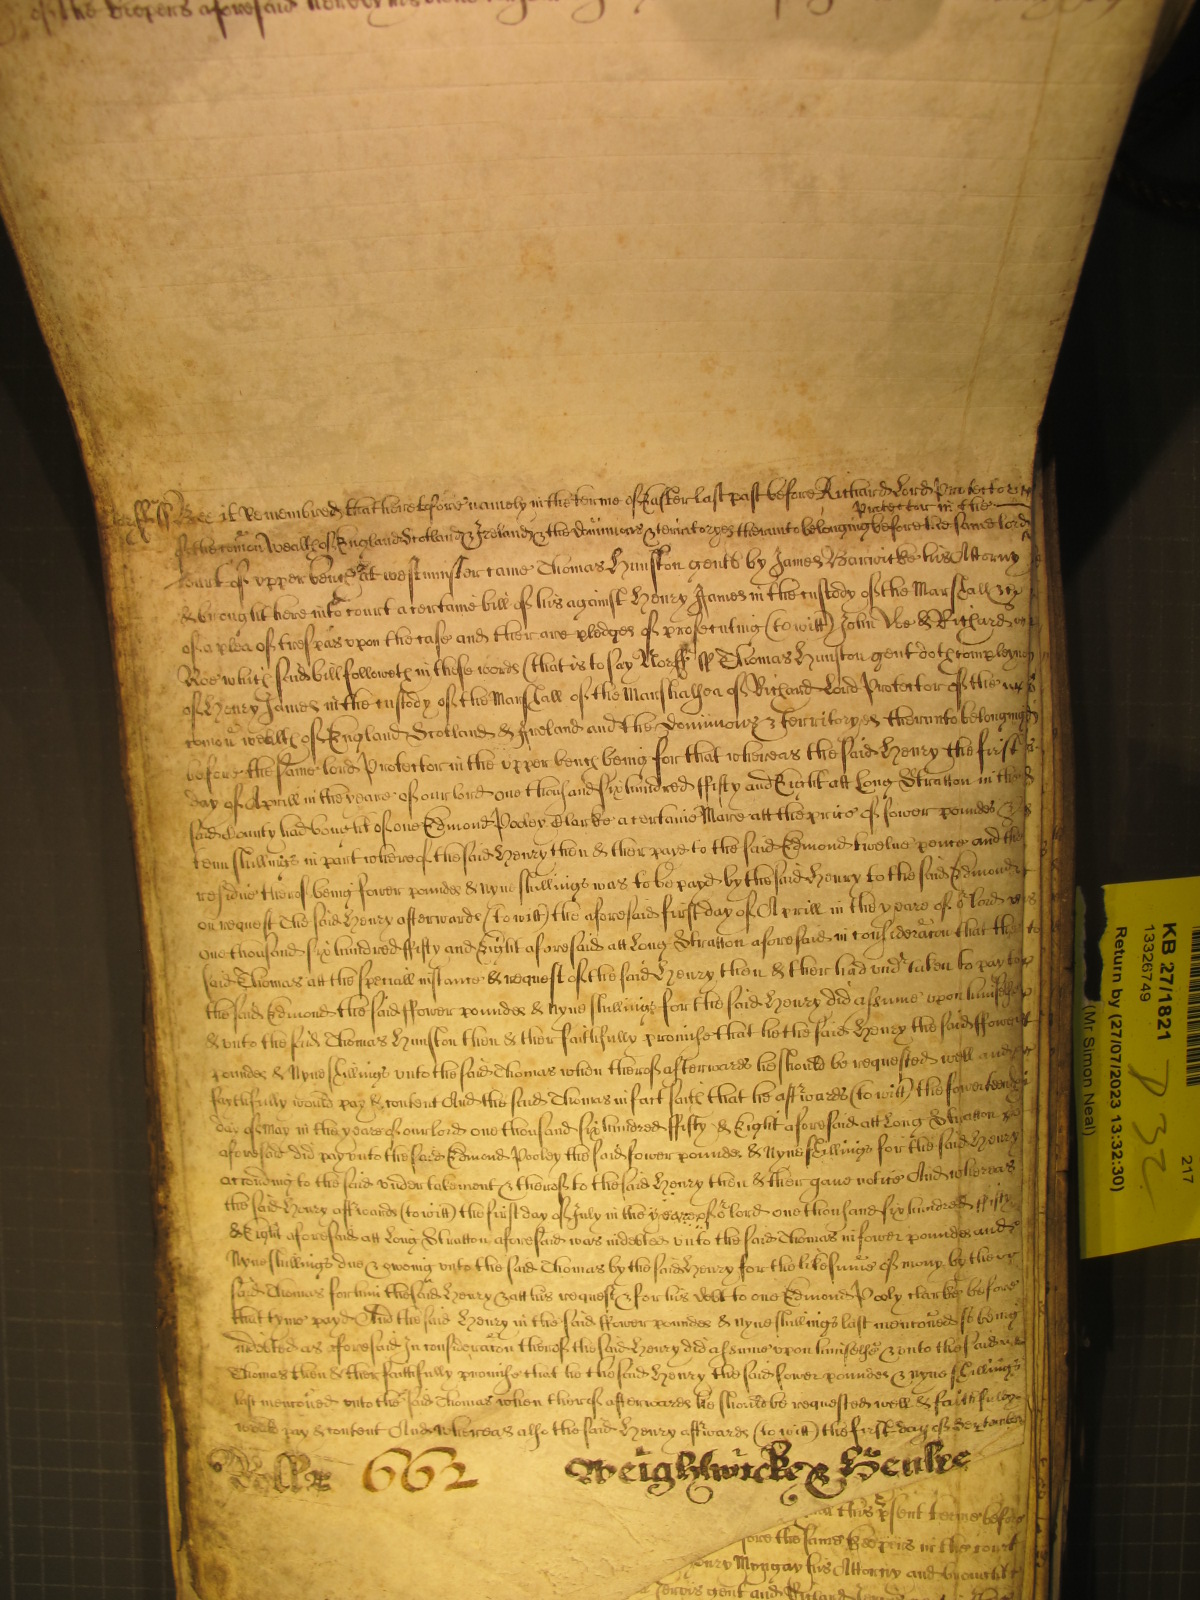 of the Keepers aforesaid
Norff ss Bee it Remembred that heretofore namely in the terme of Easter last past before Richard Lord Protector
of the comon Wealth of England Scotland & Ireland & the dominions & territoryes thereunto belonging before the same lord
Protector in the
Court of upper bench att westminster came Thomas Hunston gent by James Barwicke his Attorny
& brought here into court a certaine bill of his against Henry James in the custody of the Marshall &c
of a plea of trespas upon the case and there are pledges of prosecuting (to witt) John Doe & Richard
Roe which said bill followeth in these words (that is to say Norff ss Thomas Hunston gent doth complayne
of Henry James in the custody of the Marshall of the Marshalsea of Richard Lord Protector of the
comon wealth of England Scotland & Ireland and the Dominions & territoryes thereunto belonging
before the same lord Protector in the upper bench being for that whereas the said Henry the first
day of Aprill in the yeare of our lord one thousand six hundred ffifty and Eight att Long Stratton in the
said County had bought of one Edmond Pooley Clarke a certaine Mare att the price of fower poundes &
tenn shillings in part whereof the said Henry then & there payd to the said Edmond twelve pence and the
residue thereof being fower poundes & nyne shillings was to be payd by the said Henry to the said Edmond
on request The said Henry afterwards (to witt) the aforesaid first day of Aprill in the yeare of or lord
one thousand six hundred ffifty and Eight aforesaid att Long Stratton aforesaid in consideracon that the
said Thomas att the speciall instance & request of the said Henry then & there had undertaken to pay to
the said Edmond the said ffower poundes & nyne shillings for the said Henry did assume upon himselfe
& unto the said Thomas Hunston then & there faithfully promise that he the said Henry the said ffower
poundes & Nyne shillings unto the said Thomas when thereof afterwards he should be requested well and
faithfully would pay & content And the said Thomas in fact saith that he afterwards (to witt) the fowerteenth
day of May in the yeare of our lord one thousand six hundred ffifty & Eight aforesaid att Long Stratton
aforesaid did pay unto the said Edmond Pooley the said fower poundes & Nyne shillings for the said Henry
according to the said undertakement & thereof to the said Henry then & there gave notice And whereas
the said Henry afterwards (to witt) the first day of July in the yeare of or lord one thousand six hundred ffifty
& Eight aforesaid att Long Stratton aforesaid was indebted unto the said Thomas in fower poundes and
Nyne shillings due & oweing unto the said Thomas by the said Henry for the like sume of mony by the
said Thomas for him the said Henry & att his request & for his debt to one Edmond Pooly clarke before
that tyme payd And the said Henry in the said ffower poundes & nyne shillings last menconed soe being
indebted as aforesaid In consideracon thereof the said Henry did assume upon himselfe & unto the said
Thomas then & there faithfully promise that he the said Henry the said fower poundes & nyne shillings
last menconed unto the said Thomas when thereof afterwards he should be requested well & faithfully
would pay & content And whereas also the said Henry afterwards (to witt) the first day of September
662 Weightwicke &
this present terme before
before the same Keepers in the court
Henry Myngay his Attorny and brought
gent and Richard
KB 27/1821
13326749
217
Return by (27/07/2023 13:32:30)
(Mr Simon Neal)